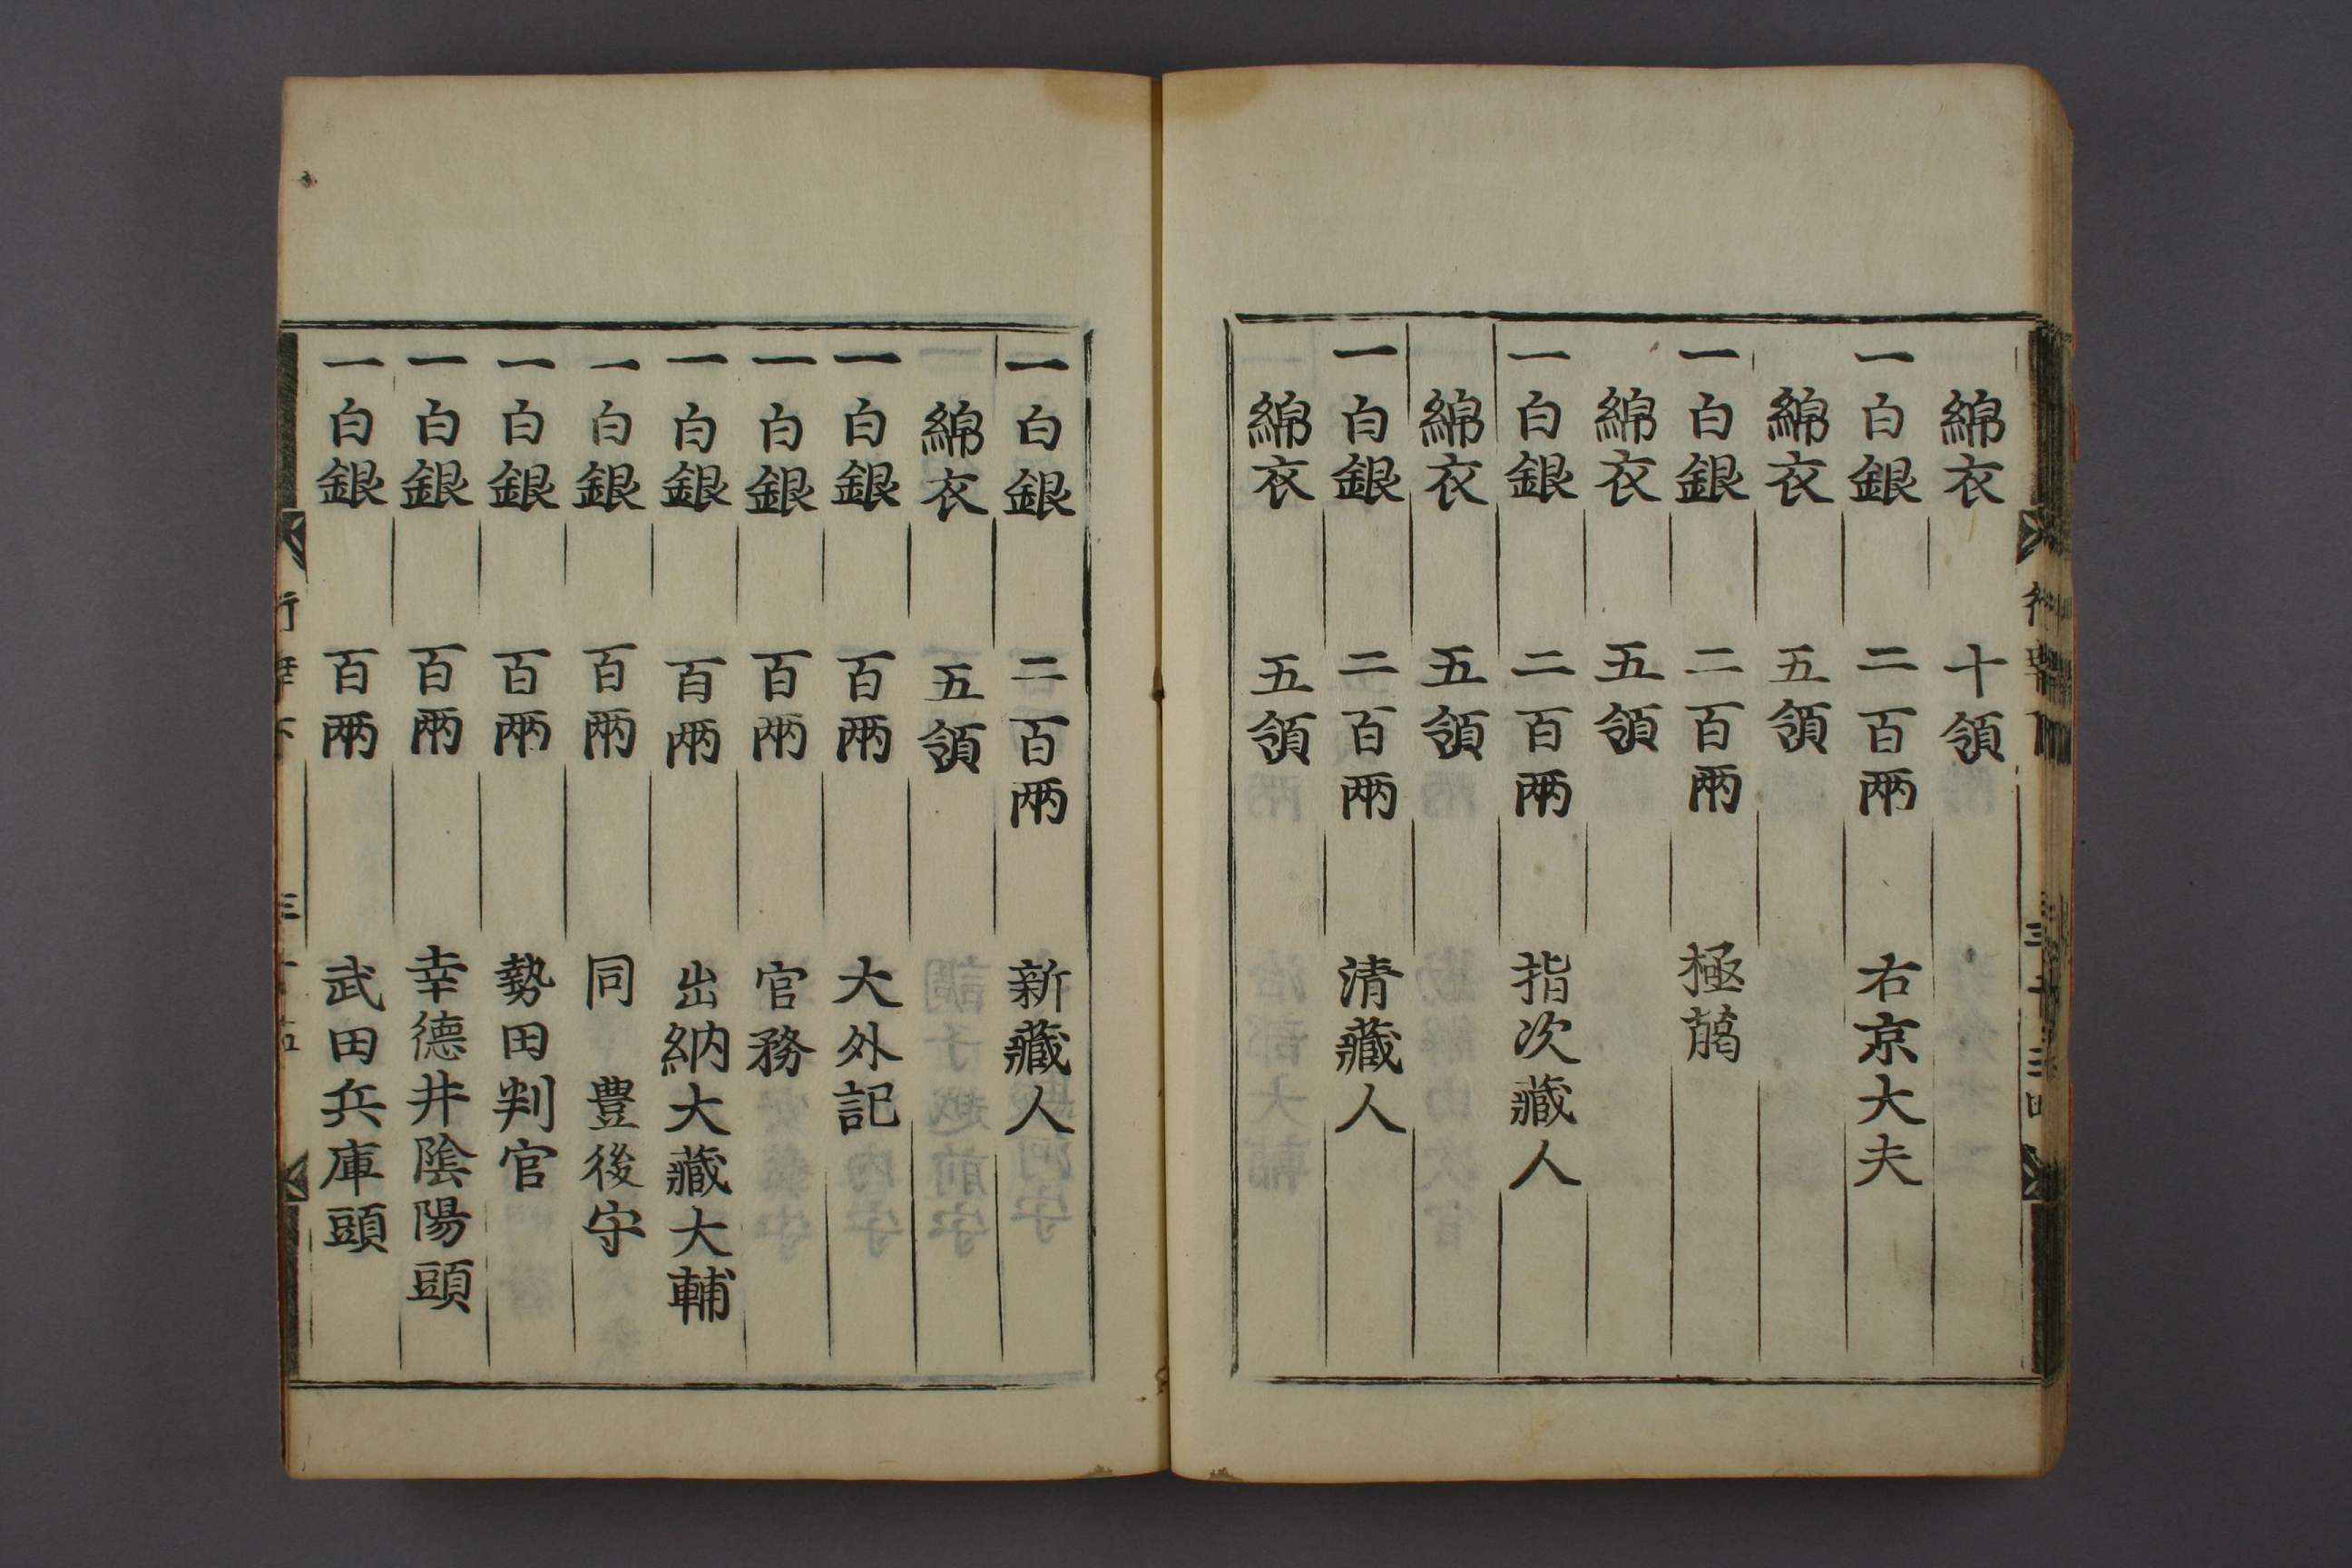 綿衣 十領
一白銀 二百兩 右京大夫
綿衣 五領
一白銀 二百兩 極﨟
綿衣 五領
一白銀 二百兩 指次藏人
綿衣 五領
一白銀 二百兩 清藏人
綿衣 五領
一白銀 二百兩 新藏人
綿衣 五領
一白銀 百兩 大外記
一白銀 百兩 官務
一白銀 百兩 出納大藏大輔
一白銀 百兩 同 豊後守
一白銀 百兩 勢田判官
一白銀 百兩 幸德井陰陽頭
一白銀 百兩 武田兵庫頭